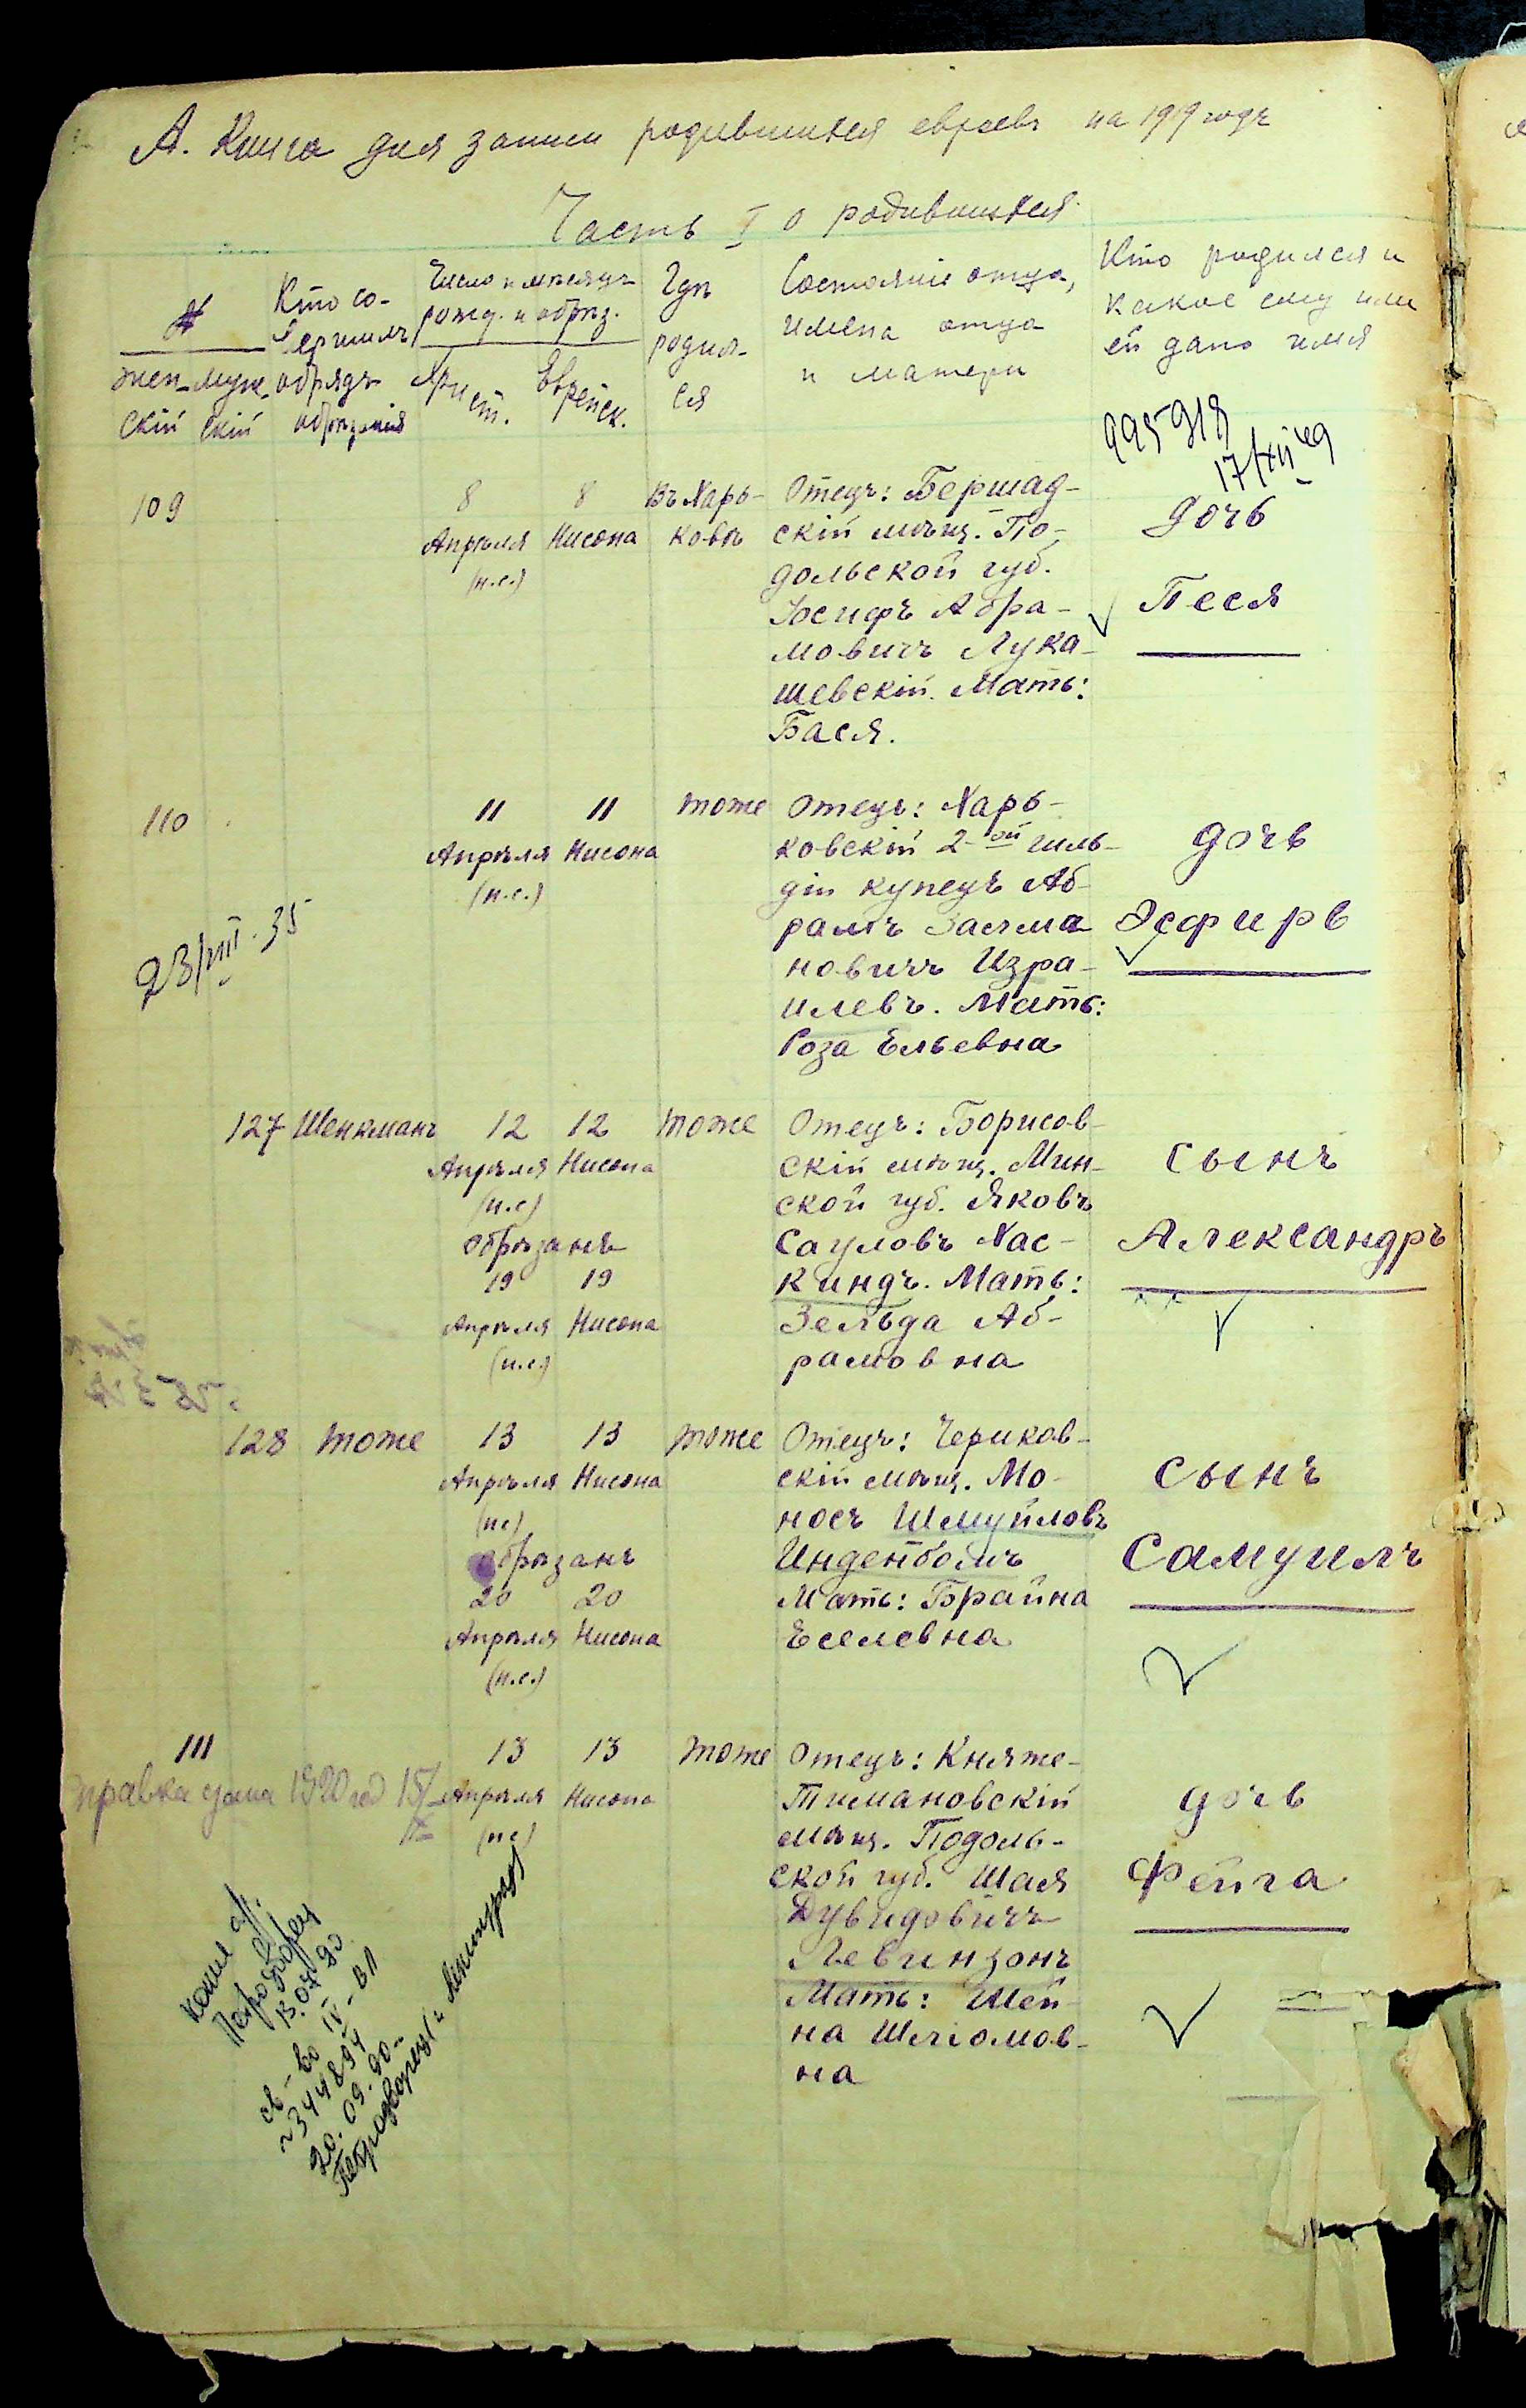 А. Книга для записи родившихся евреевъ на 1919 годъ
Часть I о родившихся
№
жен- муж-
скій скій
Кто со-
вершилъ
обрядъ
обрѣзанія
Число и мѣсяцъ
рожд. и обрѣз.
Христ. Еврейск.
Гдѣ
родил-
ся
Состояніе отца,
имена отца
и матери
Кто родился и
какое ему или
ей дано имя
995918
17/XII 49
109
8 8
Апрѣля Нисона
(н.с.)
Въ Харь-
ковѣ
Отецъ: Бершад-
скій мѣщ. По-
дольской губ.
Іосифъ Абра-
мовичъ Лука-
шевскій. Мать:
Бася.
дочь
Песя
110
23/VIII-35
11 11
Апрѣля Нисона
(н.с.)
тоже
Отецъ: Харь-
ковскій 2-ой гиль-
діи купецъ Аб-
рамъ Залма
новичъ Изра-
илевъ. Мать:
Роза Ельевна
дочь
Эсфирь
127 Шенкманъ
12 12
Апрѣля Нисона
(н.с)
обрѣзанъ
19 19
Апрѣля Нисона
(н.с.)
тоже
Отецъ: Борисов-
скій мѣщ. Мин-
ской губ. Яковъ
Сауловъ Хас-
киндъ. Мать:
Зельда Аб-
рамовна
сынъ
Александръ
128 тоже
13 13
Апрѣля Нисона
(нс)
обрѣзанъ
20 20
Апрѣля Нисона
(н.с.)
тоже
Отецъ: Чериков-
скій мѣщ. Мо-
носъ Шмуйловъ
Инденбомъ
Мать: Брайна
Еселевна
сынъ
Самуилъ
111
справка дана 1920 год 15/IX
13 13
Апрѣля Нисона
(нс)
тоже
Отецъ: Княже-
Тимановскій
мѣщ. Подоль-
ской губ. Шая
Дувидовичъ
Левинзонъ
Мать: Шей-
на Шліомов-
на
дочь
Фейга
копия
Петродворец
13.07.90
св-во IV-ВЛ
№344894
20.09.90
Петродворец г. Ленинград